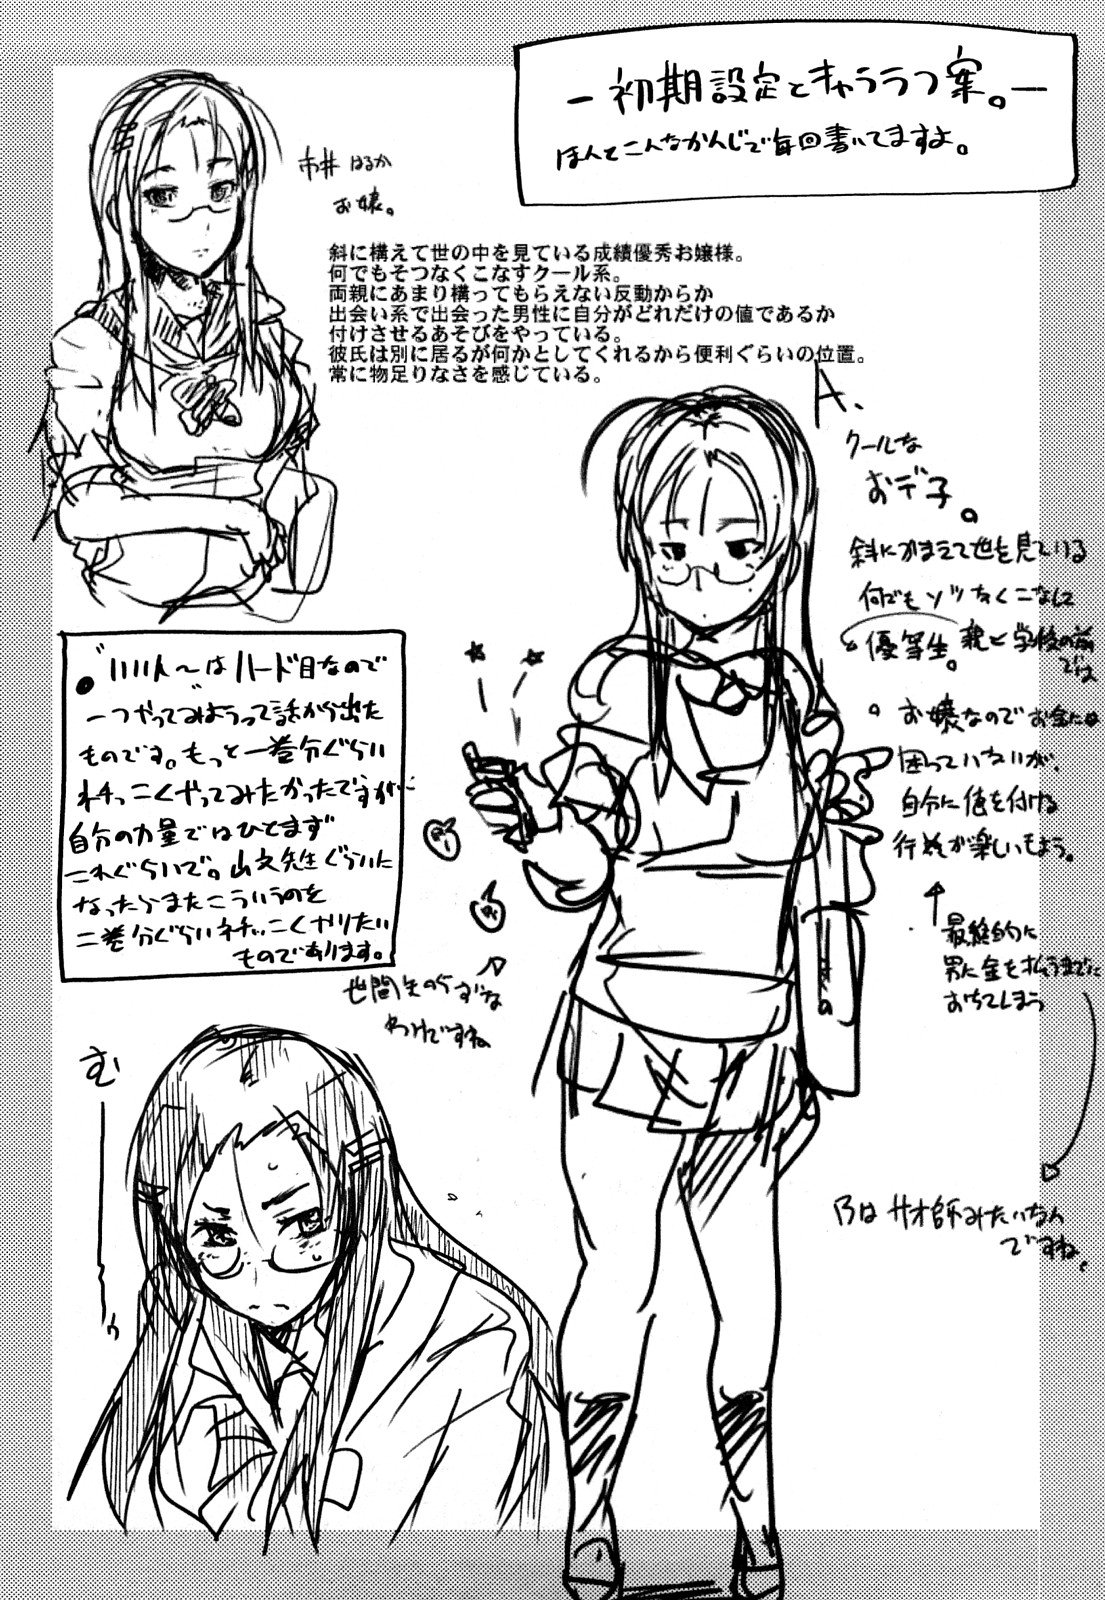 －初期設定とキャララフ案。－
ほんとこんなかんじで毎回書いてますよ。
市井 はるか
お嬢。
斜に構えて世の中を見ている成績優秀お嬢様。
何でもそつなくこなすクール系。
両親にあまり構ってもらえない反動からか
出会い系で出会った男性に自分がどれだけの値であるか
付けさせるあそびをやっている。
彼氏は別に居るが何かとしてくれるから便利ぐらいの位置。
常に物足りなさを感じている。
A.
クールな
おデ子。
斜にかまえて世を見ている
何でもソツなくこなして
優等生。親と学校の前
では
お嬢なのでお金には
困っていないが、
自分に値を付ける
行為が楽しいもよう。
↑
最終的に
男に金を払うまでに
おちてしまう
乃はサオ師みたいなん
ですね。
は ハード目なので
一つやってみようって話から出た
ものです。もっと一巻分ぐらい
ネチっこくやってみたかったですが
自分の力量ではひとまず
これぐらいで。山文先生ぐらいに
なったらまたこういうのを
二巻分ぐらいネチっこくやりたい
ものであります。
世間矢のらずな
わけですね
む